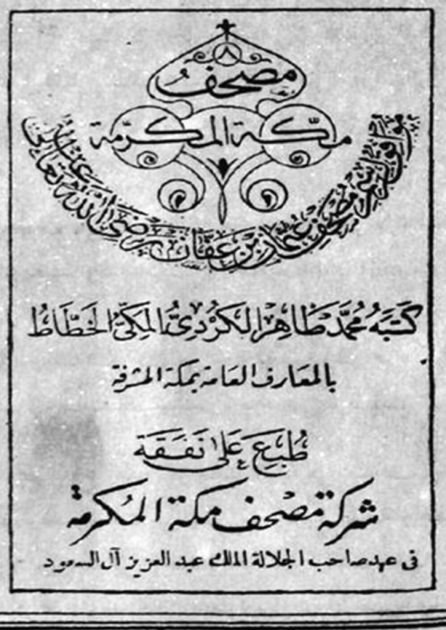 مصحف
مكة المكرمة
موافق لرسم مصحف عثمان بن عفان رضى الله تعالى عنه
كتبه محمد طاهر الكردي المكي الخطاط
بالمعارف العامة بمكة المشرفة
طبع على نفقة
شركة مصحف مكة المكرمة
فى عهد صاحب الجلالة الملك عبد العزيز آل السعود